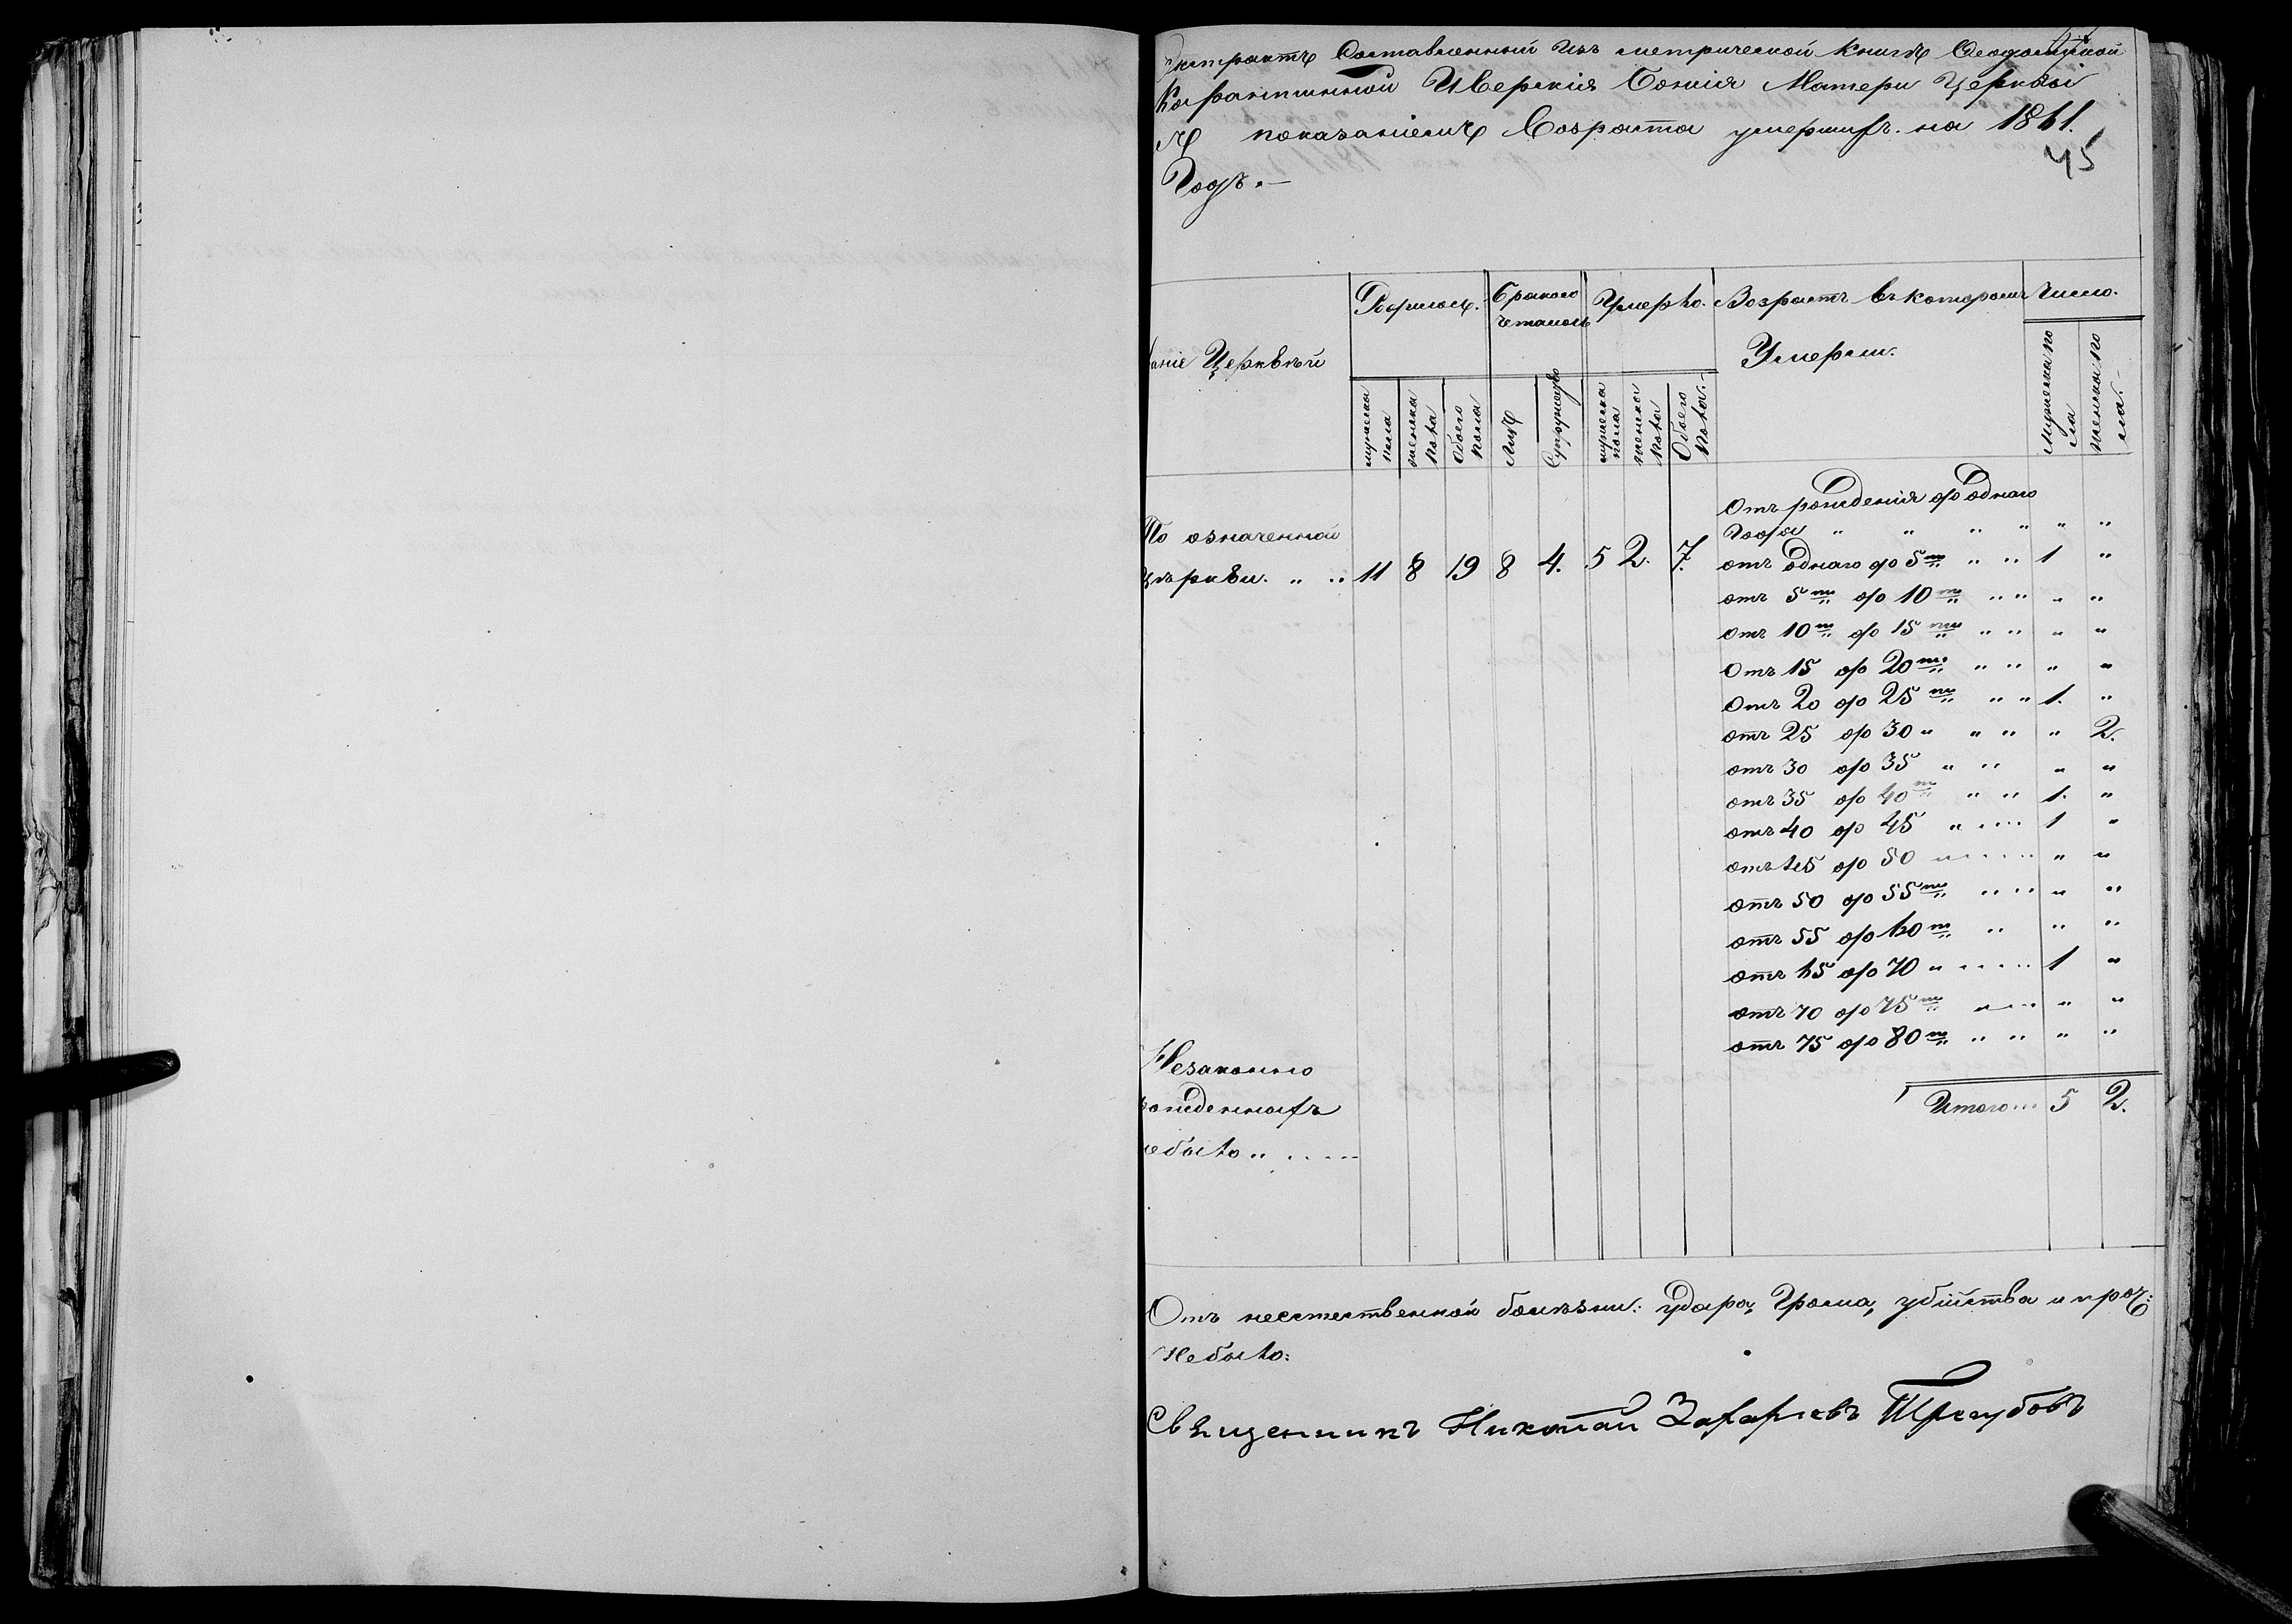 Экстрактъ Составленный Изъ метрической Книгѣ Ѳеодосійской
Карантинной Иверскія Божія Матери Церкви
съ показаніемъ Возраста умершихъ на 1861.
45
Годъ. —
Родилось. Бракосо Умерло. Возрастъ въ которомъ Число.
четалось
аніе Церквѣй Умерли.
мужеска пола
женска пола
Обоего пола
Лицъ
Супружествъ
мужеска пола
женска пола
Обоего пола. —
Мужеска по
ла
женска по
ла. —
Отъ рожденія до однаго
По означенной года " " " " " "
церкви. " " 11 8 19 8 4. 5 2. 7. отъ однаго до 5ти " " 1 "
отъ 5ти до 10ти " " " "
отъ 10ти до 15ти " " " "
Отъ 15 до 20ти " " " "
Отъ 20 до 25ти " " 1. "
отъ 25 до 30 " " " " 2.
отъ 30 до 35 " " " "
отъ 35 до 40ти " " 1. "
отъ 40 до 45 " .... 1 "
отъ 45 до 50 " .... " "
отъ 50 до 55ти " " " "
отъ 55 до 60ти " " "
отъ 65 до 70 " .... 1 "
отъ 70 до 75ти " ... " "
отъ 75 до 80ти " " " "
Незаконно
рожденныхъ Итого... 5 2.
небыло " ....
Отъ неестественной болѣзни: удара, Грома, убійства и проч:
Небыло:
Священникъ Николай Захарьевъ Трегубовъ